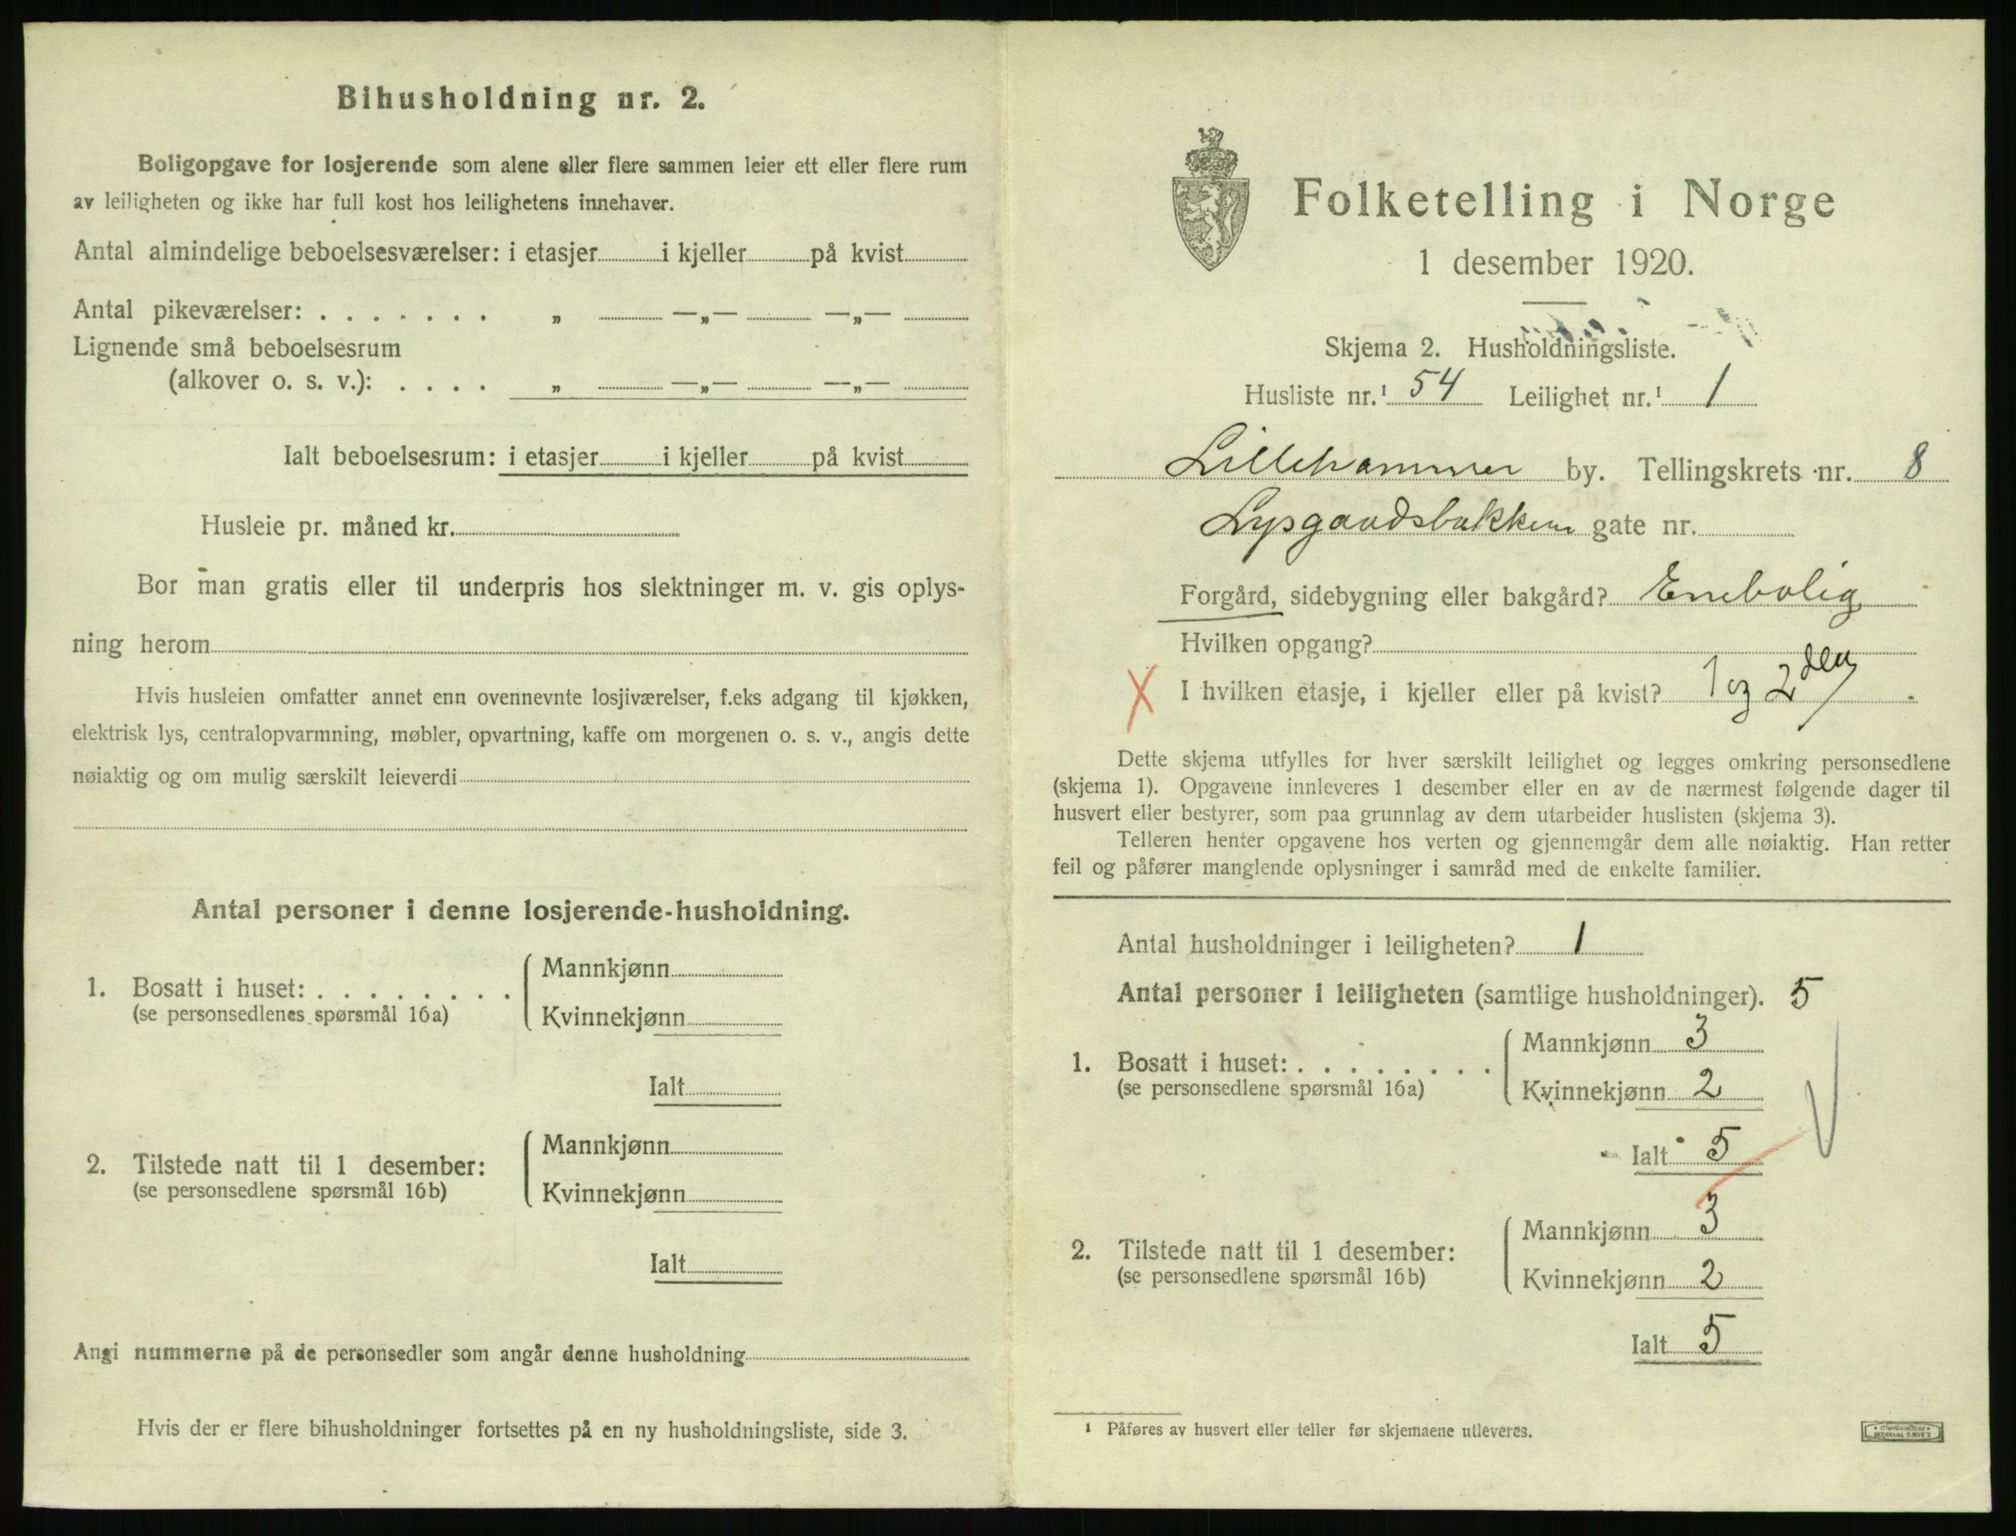 Bihusholdning nr. 2.
Boligopgave for losjerende som alene eller flere sammen leier ett eller flere rum
av leiligheten og ikke har full kost hos leilighetens innehaver.
Antal almindelige beboelsesværelser: i etasjer i kjeller på kvist
Antal pikeværelser: . . . . . . . „ —„— —„—
Lignende små beboelsesrum
(alkover o. s. v.): . . . . „ —„— —„—
Ialt beboelsesrum: i etasjer i kjeller på kvist
Husleie pr. måned kr.
Bor man gratis eller til underpris hos slektninger m. v. gis oplys-
ning herom
Hvis husleien omfatter annet enn ovennevnte losjiværelser, f.eks adgang til kjøkken,
elektrisk lys, centralopvarmning, møbler, opvartning, kaffe om morgenen o. s. v., angis dette
nøiaktig og om mulig særskilt leieverdi
Antal personer i denne losjerende-husholdning.
1. Bosatt i huset: . . . . . . . .
(se personsedlenes spørsmål 16a)
Mannkjønn
Kvinnekjønn
Ialt
2. Tilstede natt til 1 desember:
(se personsedlene spørsmål 16b)
Mannkjønn
Kvinnekjønn
Ialt
Angi nummerne på de personsedler som angår denne husholdning
Hvis der er flere bihusholdninger fortsettes på en ny husholdningsliste, side 3.
Folketelling i Norge
1 desember 1920.
Skjema 2. Husholdningsliste.
Husliste nr.¹ 54 Leilighet nr.¹ 1
Lillehammer by. Tellingskrets nr. 8
Lysgaardsbakken gate nr.
Forgård, sidebygning eller bakgård? Enebolig
Hvilken opgang?
X I hvilken etasje, i kjeller eller på kvist? 1 og 2den
Dette skjema utfylles for hver særskilt leilighet og legges omkring personsedlene
(skjema 1). Opgavene innleveres 1 desember eller en av de nærmest følgende dager til
husvert eller bestyrer, som paa grunnlag av dem utarbeider huslisten (skjema 3).
Telleren henter opgavene hos verten og gjennemgår dem alle nøiaktig. Han retter
feil og påfører manglende oplysninger i samråd med de enkelte familier.
Antal husholdninger i leiligheten? 1
Antal personer i leiligheten (samtlige husholdninger). 5
1. Bosatt i huset: . . . . . . . .
(se personsedlene spørsmål 16a)
Mannkjønn 3
Kvinnekjønn 2
Ialt 5
2. Tilstede natt til 1 desember:
(se personsedlene spørsmål 16b)
Mannkjønn 3
Kvinnekjønn 2
Ialt 5
¹ Påføres av husvert eller teller før skjemaene utleveres.